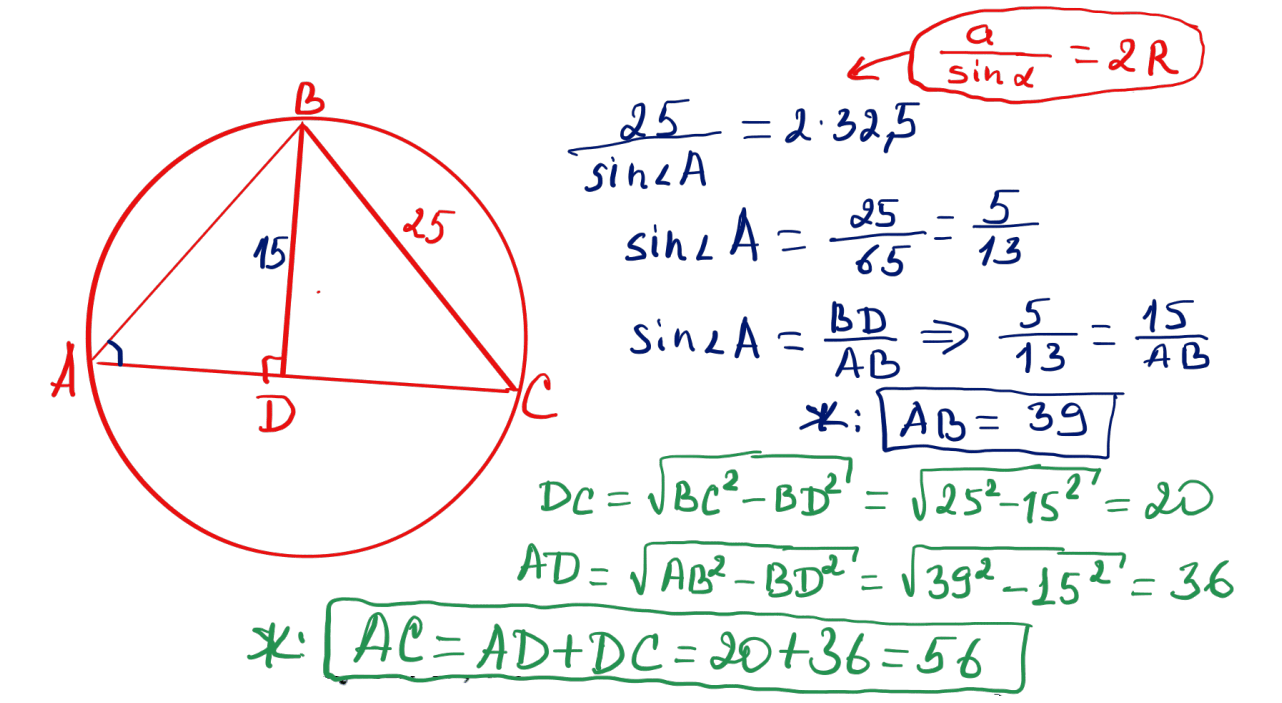 a/sinα = 2R
B
25/sin∠A = 2·32,5
15
25
sin∠A = 25/65 = 5/13
A
D
C
sin∠A = BD/AB ⇒ 5/13 = 15/AB
*: AB = 39
DC = √BC²-BD² = √25²-15² = 20
AD = √AB²-BD² = √39²-15² = 36
*: AC = AD+DC = 20+36 = 56